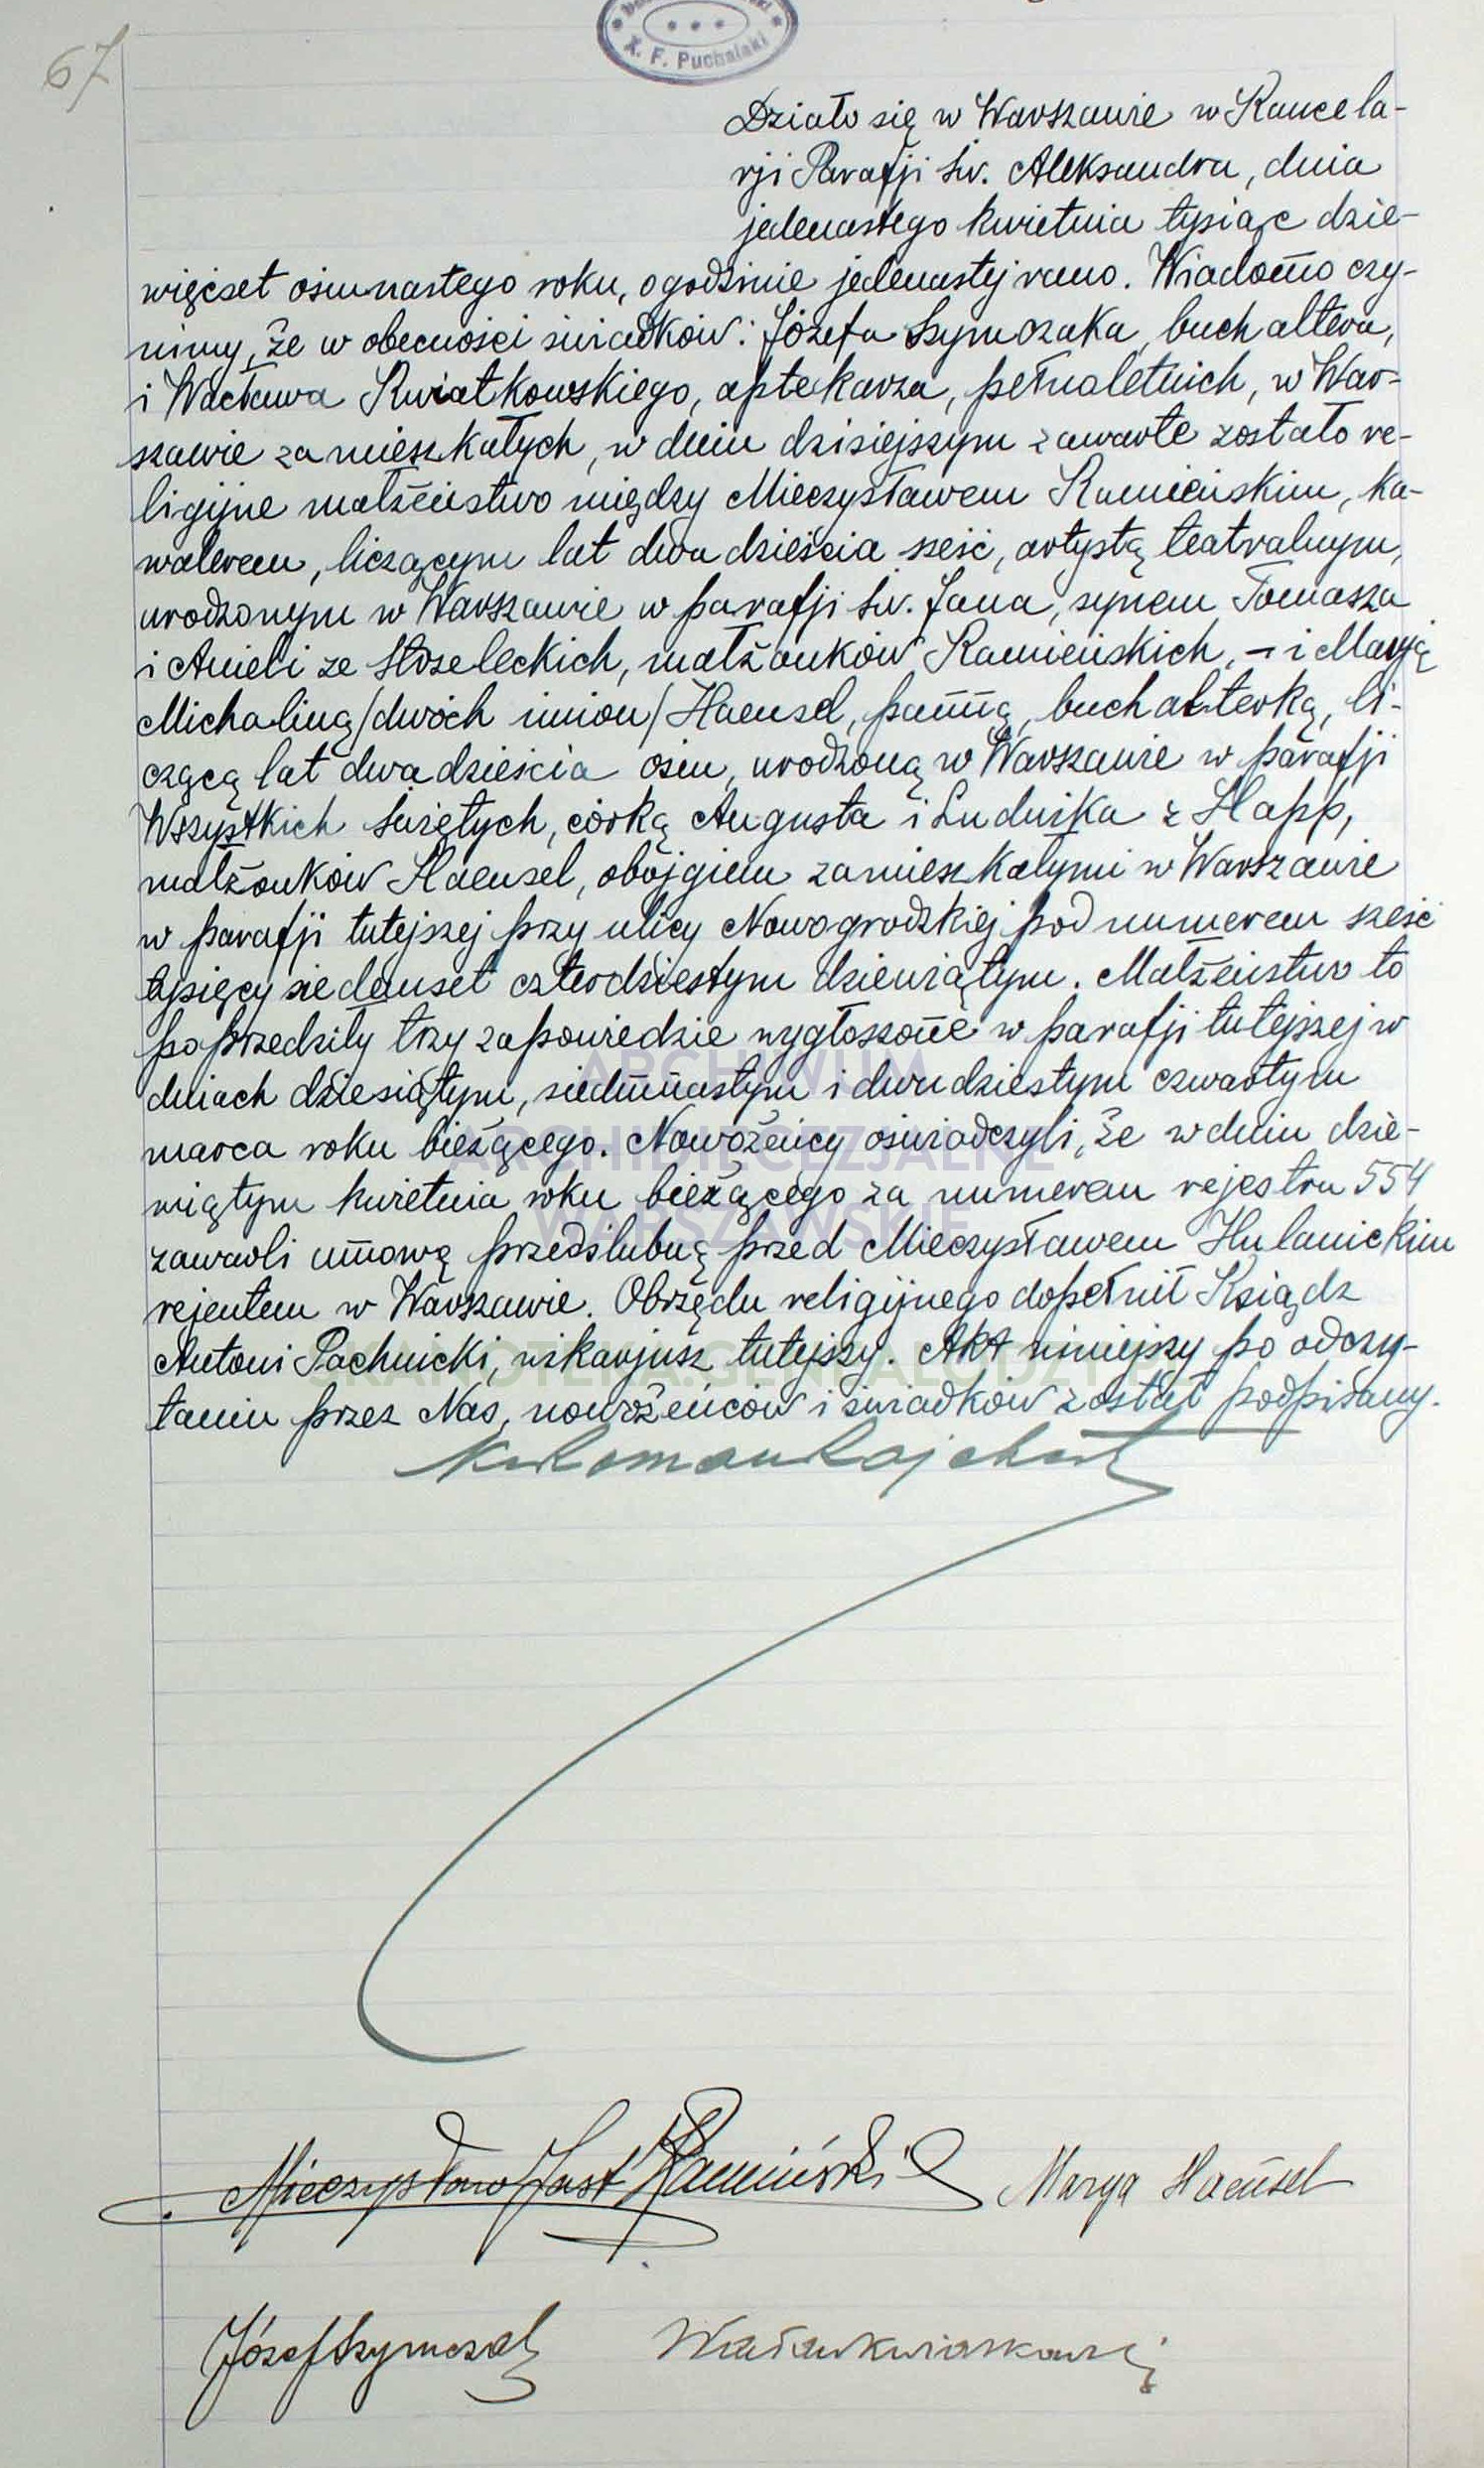 67
X. F. Puchalski
Działo się w Warszawie w Kancela-
rji Parafji św. Aleksandra, dnia
jedenastego kwietnia tysiąc dzie-
więćset osiemnastego roku, o godzinie jedenastej rano. Wiadomo czy-
nimy, że w obecności świadków: Józefa Szymczaka, buchaltera,
i Wacława Kwiatkowskiego, aptekarza, pełnoletnich, w War-
szawie zamieszkałych, w dniu dzisiejszym zawarte zostało re-
ligijne małżeństwo między Mieczysławem Kamieńskim, ka-
walerem, liczącym lat dwadzieścia sześć, artystą teatralnym,
urodzonym w Warszawie w parafji św. Jana, synem Tomasza
i Anieli ze Strzeleckich, małżonków Kamieńskich, – i Maryą
Michaliną /dwóch imion/ Haensel, panną, buchalterką, li-
czącą lat dwadzieścia osiem, urodzoną w Warszawie w parafji
Wszystkich Świętych, córką Augusta i Ludwika z Happ,
małżonków Haensel, obojgiem zamieszkałymi w Warszawie
w parafji tutejszej przy ulicy Nowogrodzkiej pod numerem sześć
tysięcy siedemset czterdziestym dziewiątym. Małżeństwo to
poprzedziły trzy zapowiedzie wygłoszone w parafji tutejszej w
dniach dziesiątym, siedmnastym i dwudziestym czwartym
marca roku bieżącego. Nowożeńcy oświadczyli, że w dniu dzie-
wiątym kwietnia roku bieżącego za numerem rejestru 554
zawarli umowę przedślubną przed Mieczysławem Hulanickim
rejentem w Warszawie. Obrzędu religijnego dopełnił Ksiądz
Antoni Pachnicki, wikarjusz tutejszy. Akt niniejszy po odczy-
taniu przez Nas, nowożeńców i świadków został podpisany.
ARCHIWUM
ARCHIDIECEZJALNE
WARSZAWSKIE
SKANOTEKA.GENEALODZY
Mieczysław Kamiński Marya Haensel
Józef Szymczak Wacław Kwiatkowski